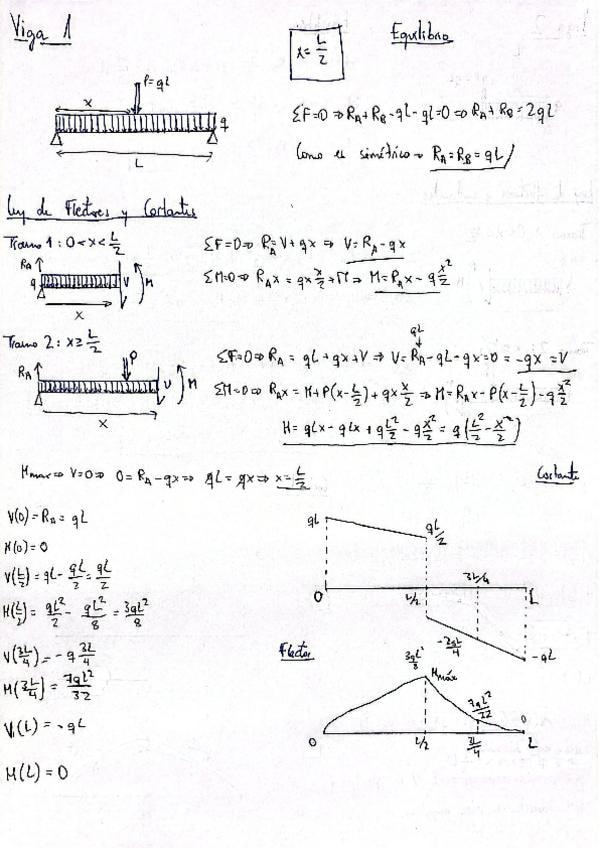 Viga 1
x = L/2
Equilibrio
P=qL
x
q
L
ΣF=0 ⇒ R_A + R_B - qL - qL = 0 ⇒ R_A + R_B = 2qL
Como es simétrico → R_A = R_B = qL
Ley de Flectores y Cortantes
Tramo 1: 0 < x < L/2
R_A
q
V
M
x
ΣF=0 ⇒ R_A = V + qx ⇒ V = R_A - qx
ΣM=0 ⇒ R_A x = qx x/2 + M ⇒ M = R_A x - q x²/2
Tramo 2: x ≥ L/2
R_A
P
V
M
x
qL
ΣF=0 ⇒ R_A = qL + qx + V ⇒ V = R_A - qL - qx = 0 = -qx = V
ΣM=0 ⇒ R_A x = M + P(x - L/2) + qx x/2 ⇒ M = R_A x - P(x - L/2) - q x²/2
M = qLx - qLx + q L²/2 - q x²/2 = q(L²/2 - x²/2)
M max ⇒ V=0 ⇒ 0 = R_A - qx ⇒ qL = qx ⇒ x = L/2
Cortante
V(0) = R_A = qL
M(0) = 0
V(L/2) = qL - qL/2 = qL/2
M(L/2) = qL²/2 - qL²/8 = 3qL²/8
V(3L/4) = -q 3L/4
M(3L/4) = 7qL²/32
V(L) = -qL
M(L) = 0
qL
qL/2
3L/4
0
L/2
L
-3qL/4
-qL
Flector
3qL²/8
M máx
7qL²/32
0
0
L/2
3L/4
L